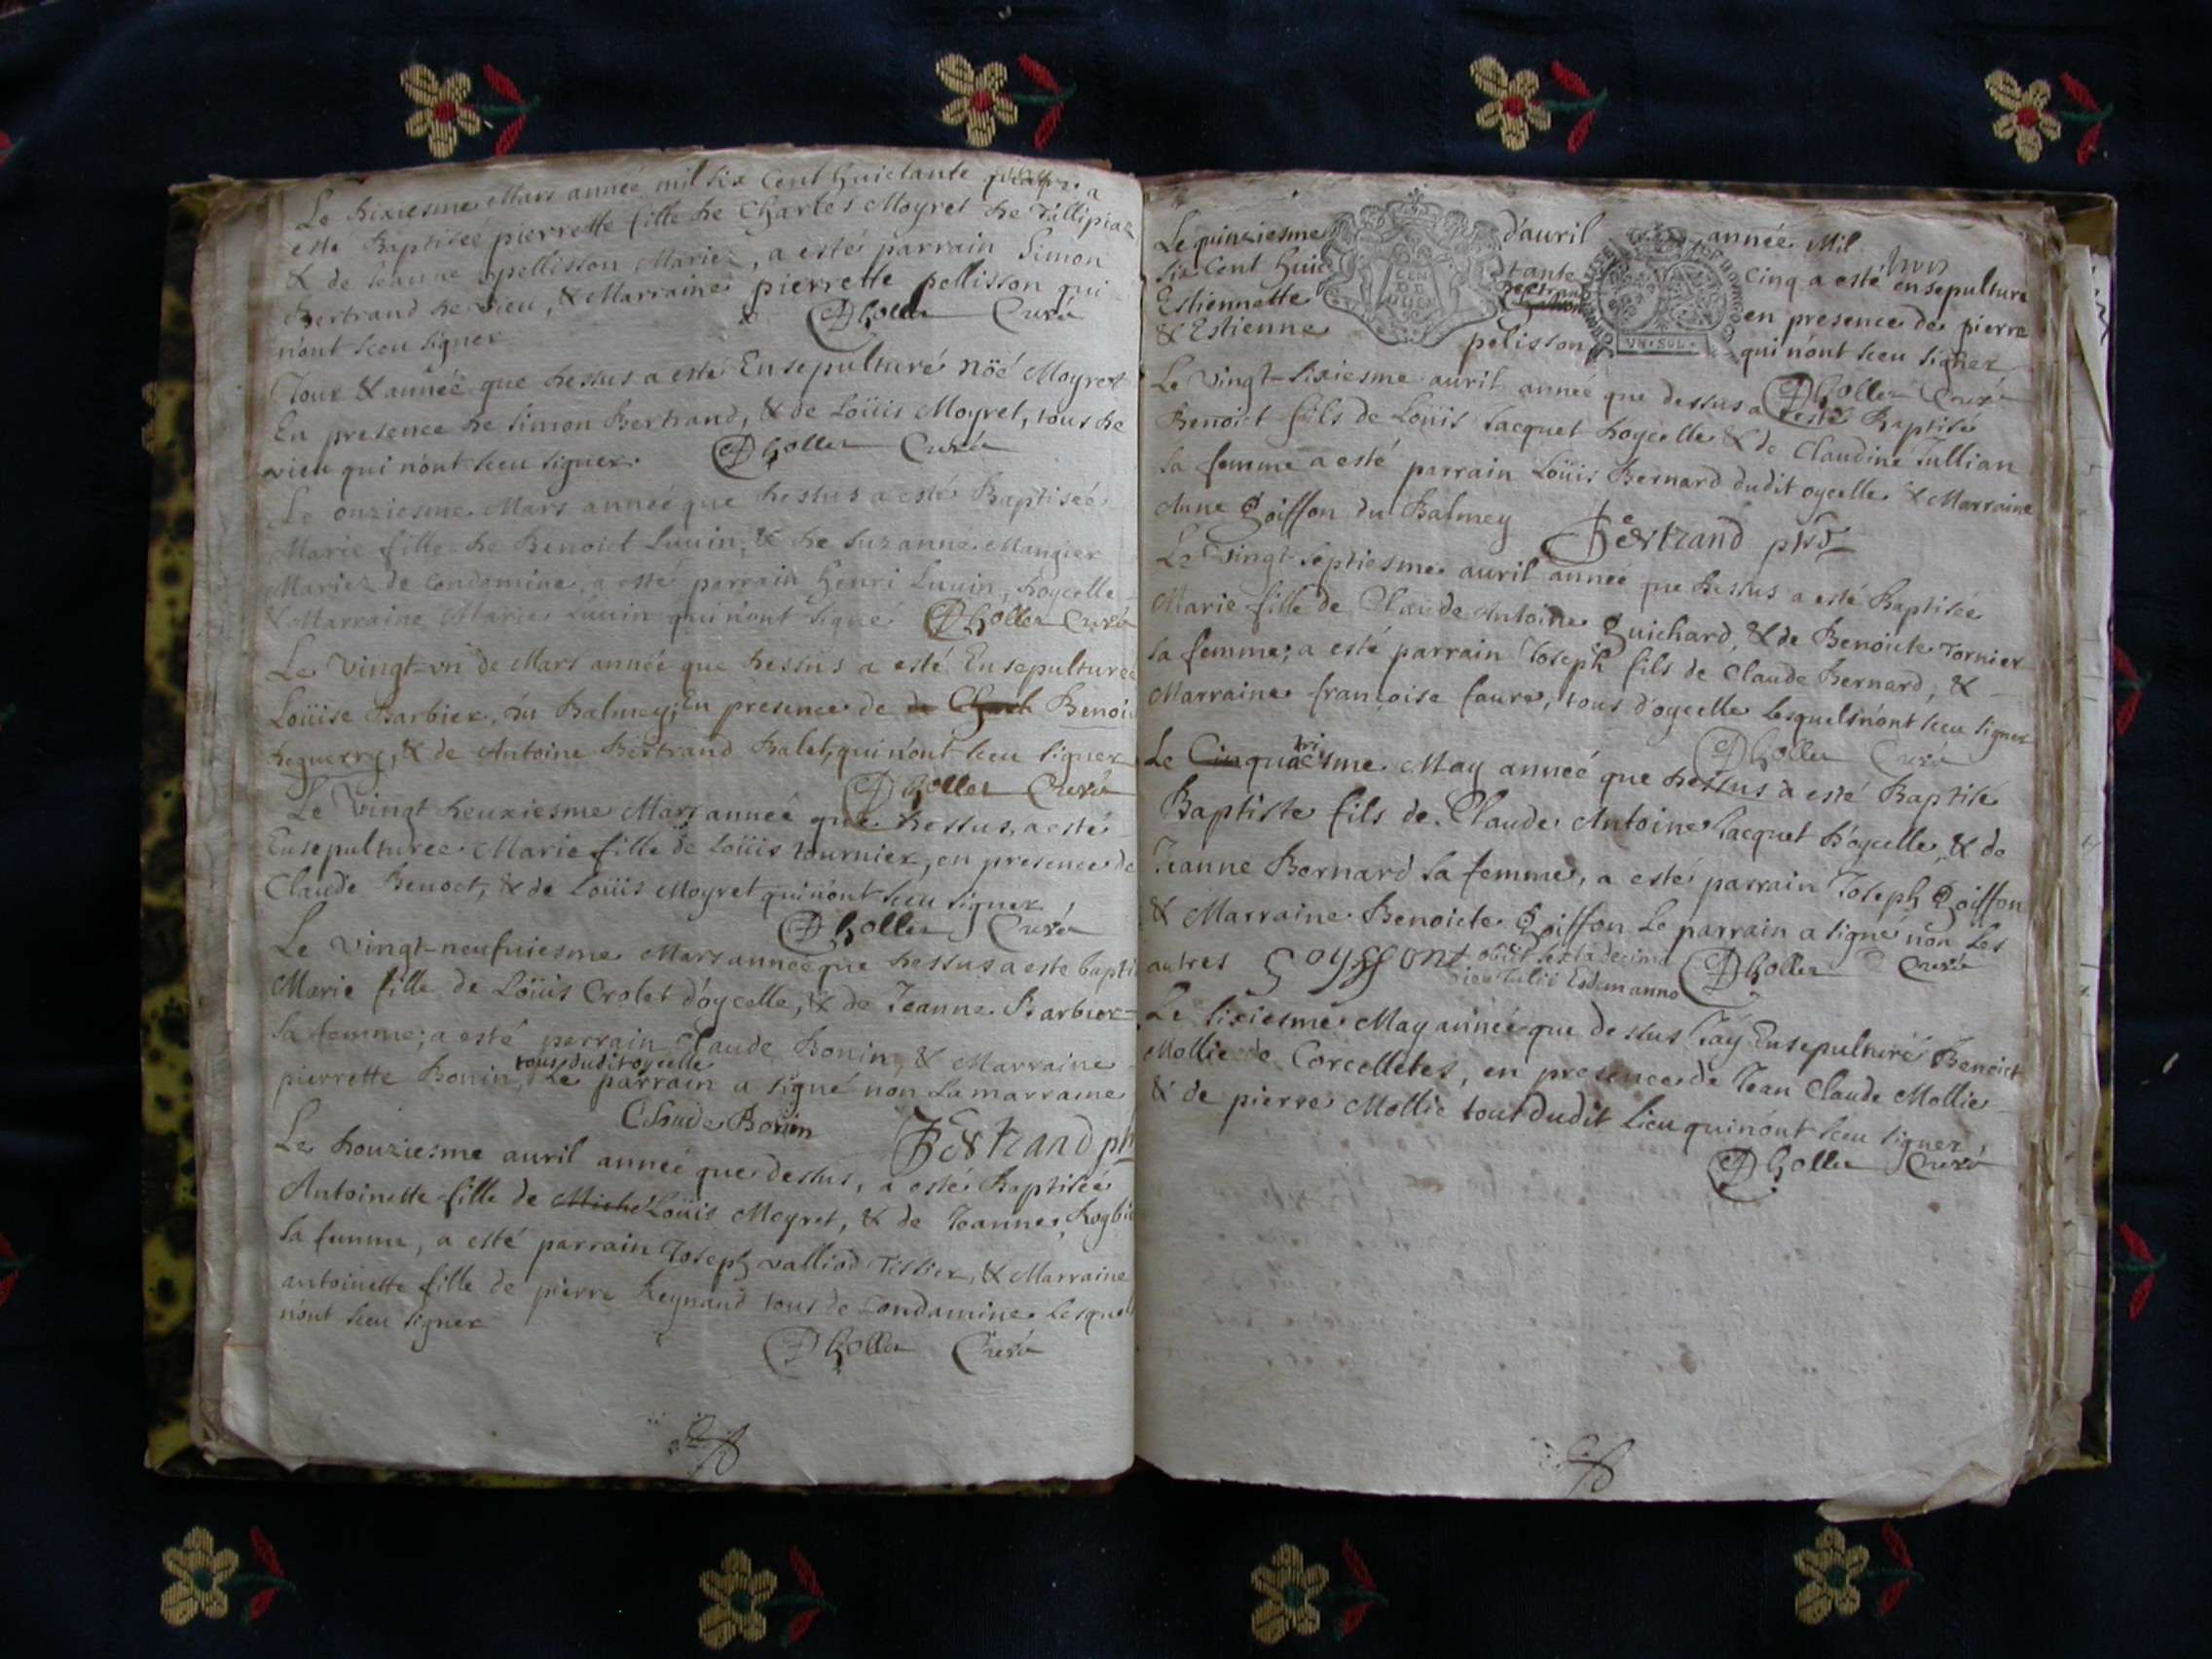 Le dixiesme Mars année mil six Cent huictante a
este Baptisée pierrette fille de Charles Moyret de
& de Jeanne pellisson Mariez, a esté parrain Simon
Bertrand de vieu, & Marraine pierrette pellisson qui
n'ont sceu signer Curé
Jour & année que dessus a este Ensepulturé Nöé Moyret
En presence de Simon Bertrand, & de Loüis Moyret, tous de
vieu qui n'ont sceu signer. Curé
Le onziesme Mars année que dessus a esté Baptisée
Marie fille de Benoict Luuin, & de Suzanne Maugier
Mariez de Condamine, a esté parrain henri Luuin, d'oycelle
& Marraine Marie Luuin qui n'ont signé Curé
Le Vingt-vn de Mars année que dessus a esté Ensepulturée
Loüise Barbier, du Balmey, En presence de de Benoi
heguerry, & de Antoine Bertrand Balet, qui n'ont sceu signer
Curé
Le Vingt deuxiesme Mars année que dessus, a esté
Ensepulturée Marie fille de Loüis tournier, en presence de
Claude Benoct, & de Loüis Moyret qui n'ont sceu signer
Curé
Le vingt-neufuiesme Mars année que dessus a este bapti
Marie fille de Loüis Crolet d'oycelle, & de Jeanne Barbier
sa femme; a esté parrain Claude Bonin, & Marraine
tous dudit oycelle
pierrette Bonin, Le parrain a signé non La marraine
Claude Bonin Bertrand
Le douziesme auril année que dessus, a esté Baptisée
Antoinette fille de Miche Loüis Moyret, & de Jeanne
sa femme, a esté parrain Joseph valliod Tissier, & Marraine
antoinette fille de pierre Reynaud tous de Condamine Lesquel
n'ont sceu signer
Curé
Le quinziesme d'auril année Mil
six Cent huic tante Cinq a esté ensepulture
Estiennette en presence de pierre
& Estienne pelisson qui n'ont sceu signer
UN·SOL·
Curé
Le Vingt-sixiesme auril année que dessus a esté Baptisé
Benoict fils de Loüis Jacquet d'oycelle & de Claudine Jullian
sa femme a esté parrain Loüis Bernard dudit oycelle & Marraine
Anne goiffon du Balmey Bertrand
Le Vingt-septiesme auril année que dessus a esté Baptisée
Marie fille de Claude Antoine guichard, & de Benoicte Tornier
sa femme; a esté parrain Joseph fils de Claude Bernard, &
Marraine françoise faure, tous d'oycelle Lesquels n'ont sceu signer
Curé
Le Cinquiesme May année que dessus a esté Baptisé
Baptiste fils de Claude Antoine Jacquet d'oycelle, & de
Jeanne Bernard sa femme, a esté parrain Joseph goiffon
& Marraine Benoicte goiffon Le parrain a signé non Les
autres goyffont Curé
obiit sexta decima
die Julii Esdem anno
Le sixiesme May année que dessus J'ay Ensepulturé Benoict
Mollie de Corcelletes, en presence de Jean Claude Mollie
& de pierre Mollie tout dudit Lieu qui n'ont sceu signer
Curé